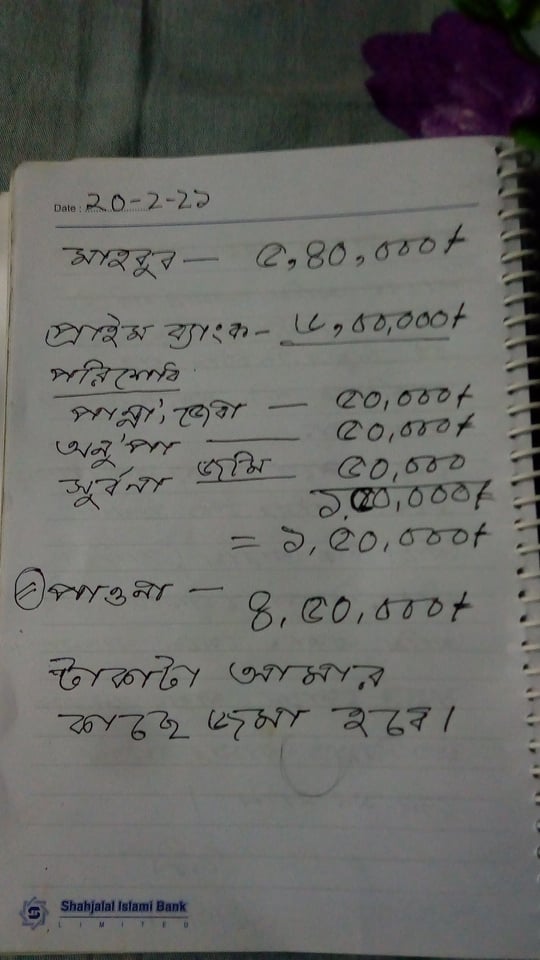 Date : ২০-২-২১
মাহবুব — ৫,৪০,০০০৳
প্রাইম ব্যাংক - ৬,০০,০০০৳
পরিশোধ
পান্না, জেবা — ৫০,০০০৳
অনুপা — ৫০,০০০৳
সুর্বনা জমি ৫০,০০০
১,৫০,০০০৳
= ১,৫০,০০০৳
পাওনা — ৪,৫০,০০০৳
টাকাটা আমার
কাছে জমা হবে।
Shahjalal Islami Bank
LIMITED